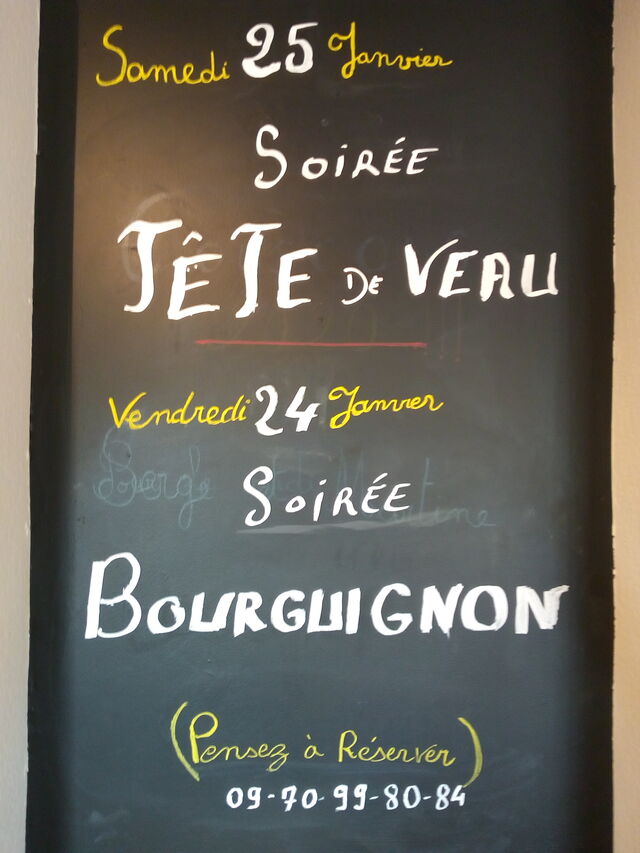 Samedi 25 Janvier
SOIRÉE
TÊTE DE VEAU
Vendredi 24 Janvier
SOIRÉE
BOURGUIGNON
(Pensez à Réserver)
09-70-99-80-84